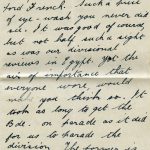 ford French. Such a piece
of eye-wash you never did
see. It was good of round
but not half such a sight
as was our divisional
reviews in Egypt. Yet the
air of importance that
everyone wore, would
make you think so. It
took as long to get the
Bde. on parade as it did
for us to parade the
division. The